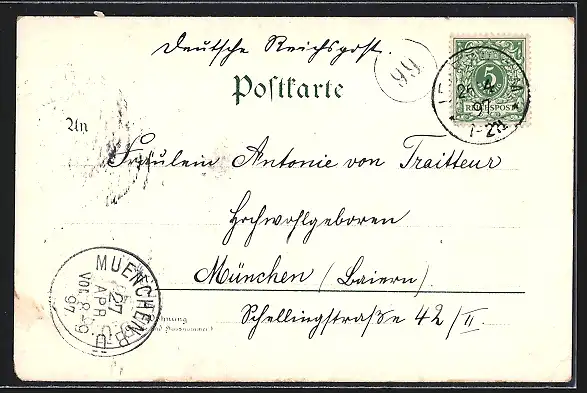 Deutsche Reichspost.
99
Postkarte
5
REICHSPOST
26 4
97
7-8N
An
Fräulein Antonie von Traitteur
Hochwohlgeboren
München (Baiern)
Schellingstraße 42/II
MUENCHEN B.U.
27
APR
VOR. 8-9
97
Wohnung
und Hausnummer)